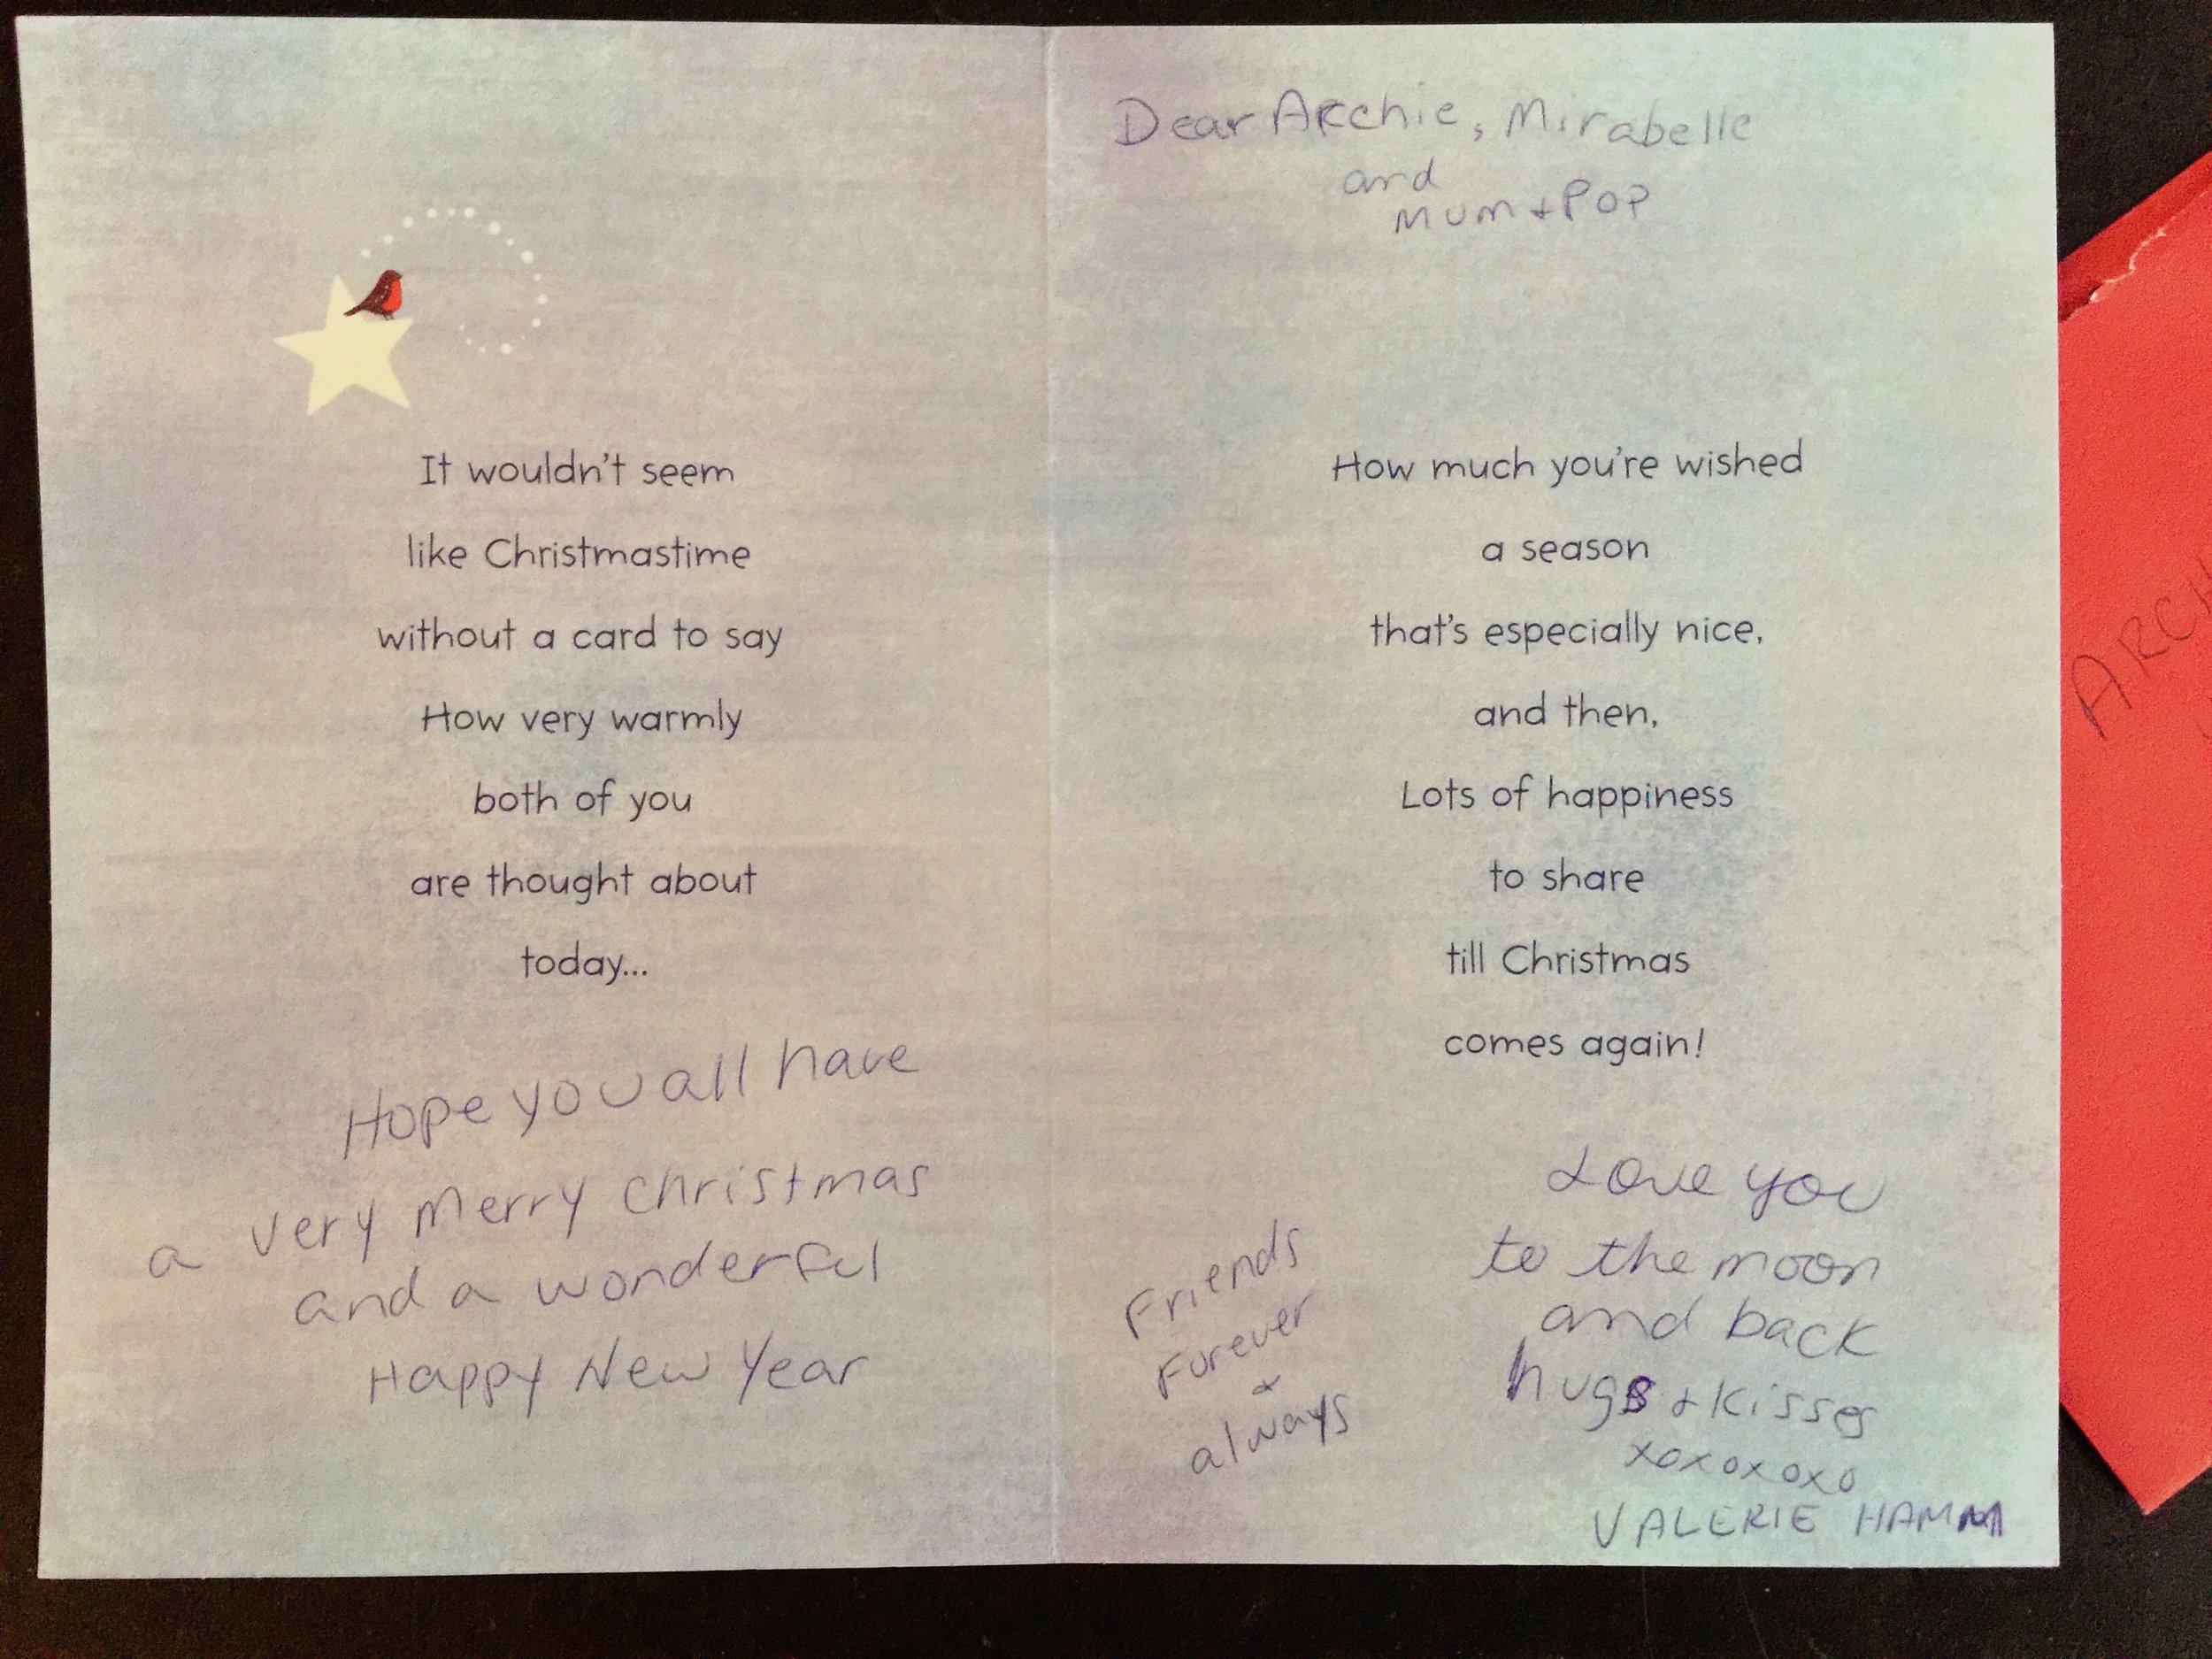 It wouldn't seem
like Christmastime
without a card to say
How very warmly
both of you
are thought about
today...
Hope you all have
a very Merry Christmas
and a wonderful
Happy New Year
Dear Archie, Mirabelle
and
Mum + Pop
How much you're wished
a season
that's especially nice,
and then,
Lots of happiness
to share
till Christmas
comes again!
Friends
Forever
+
always
Love you
to the moon
and back
hugs + kisses
xoxoxoxo
VALERIE HAMM
ARCH